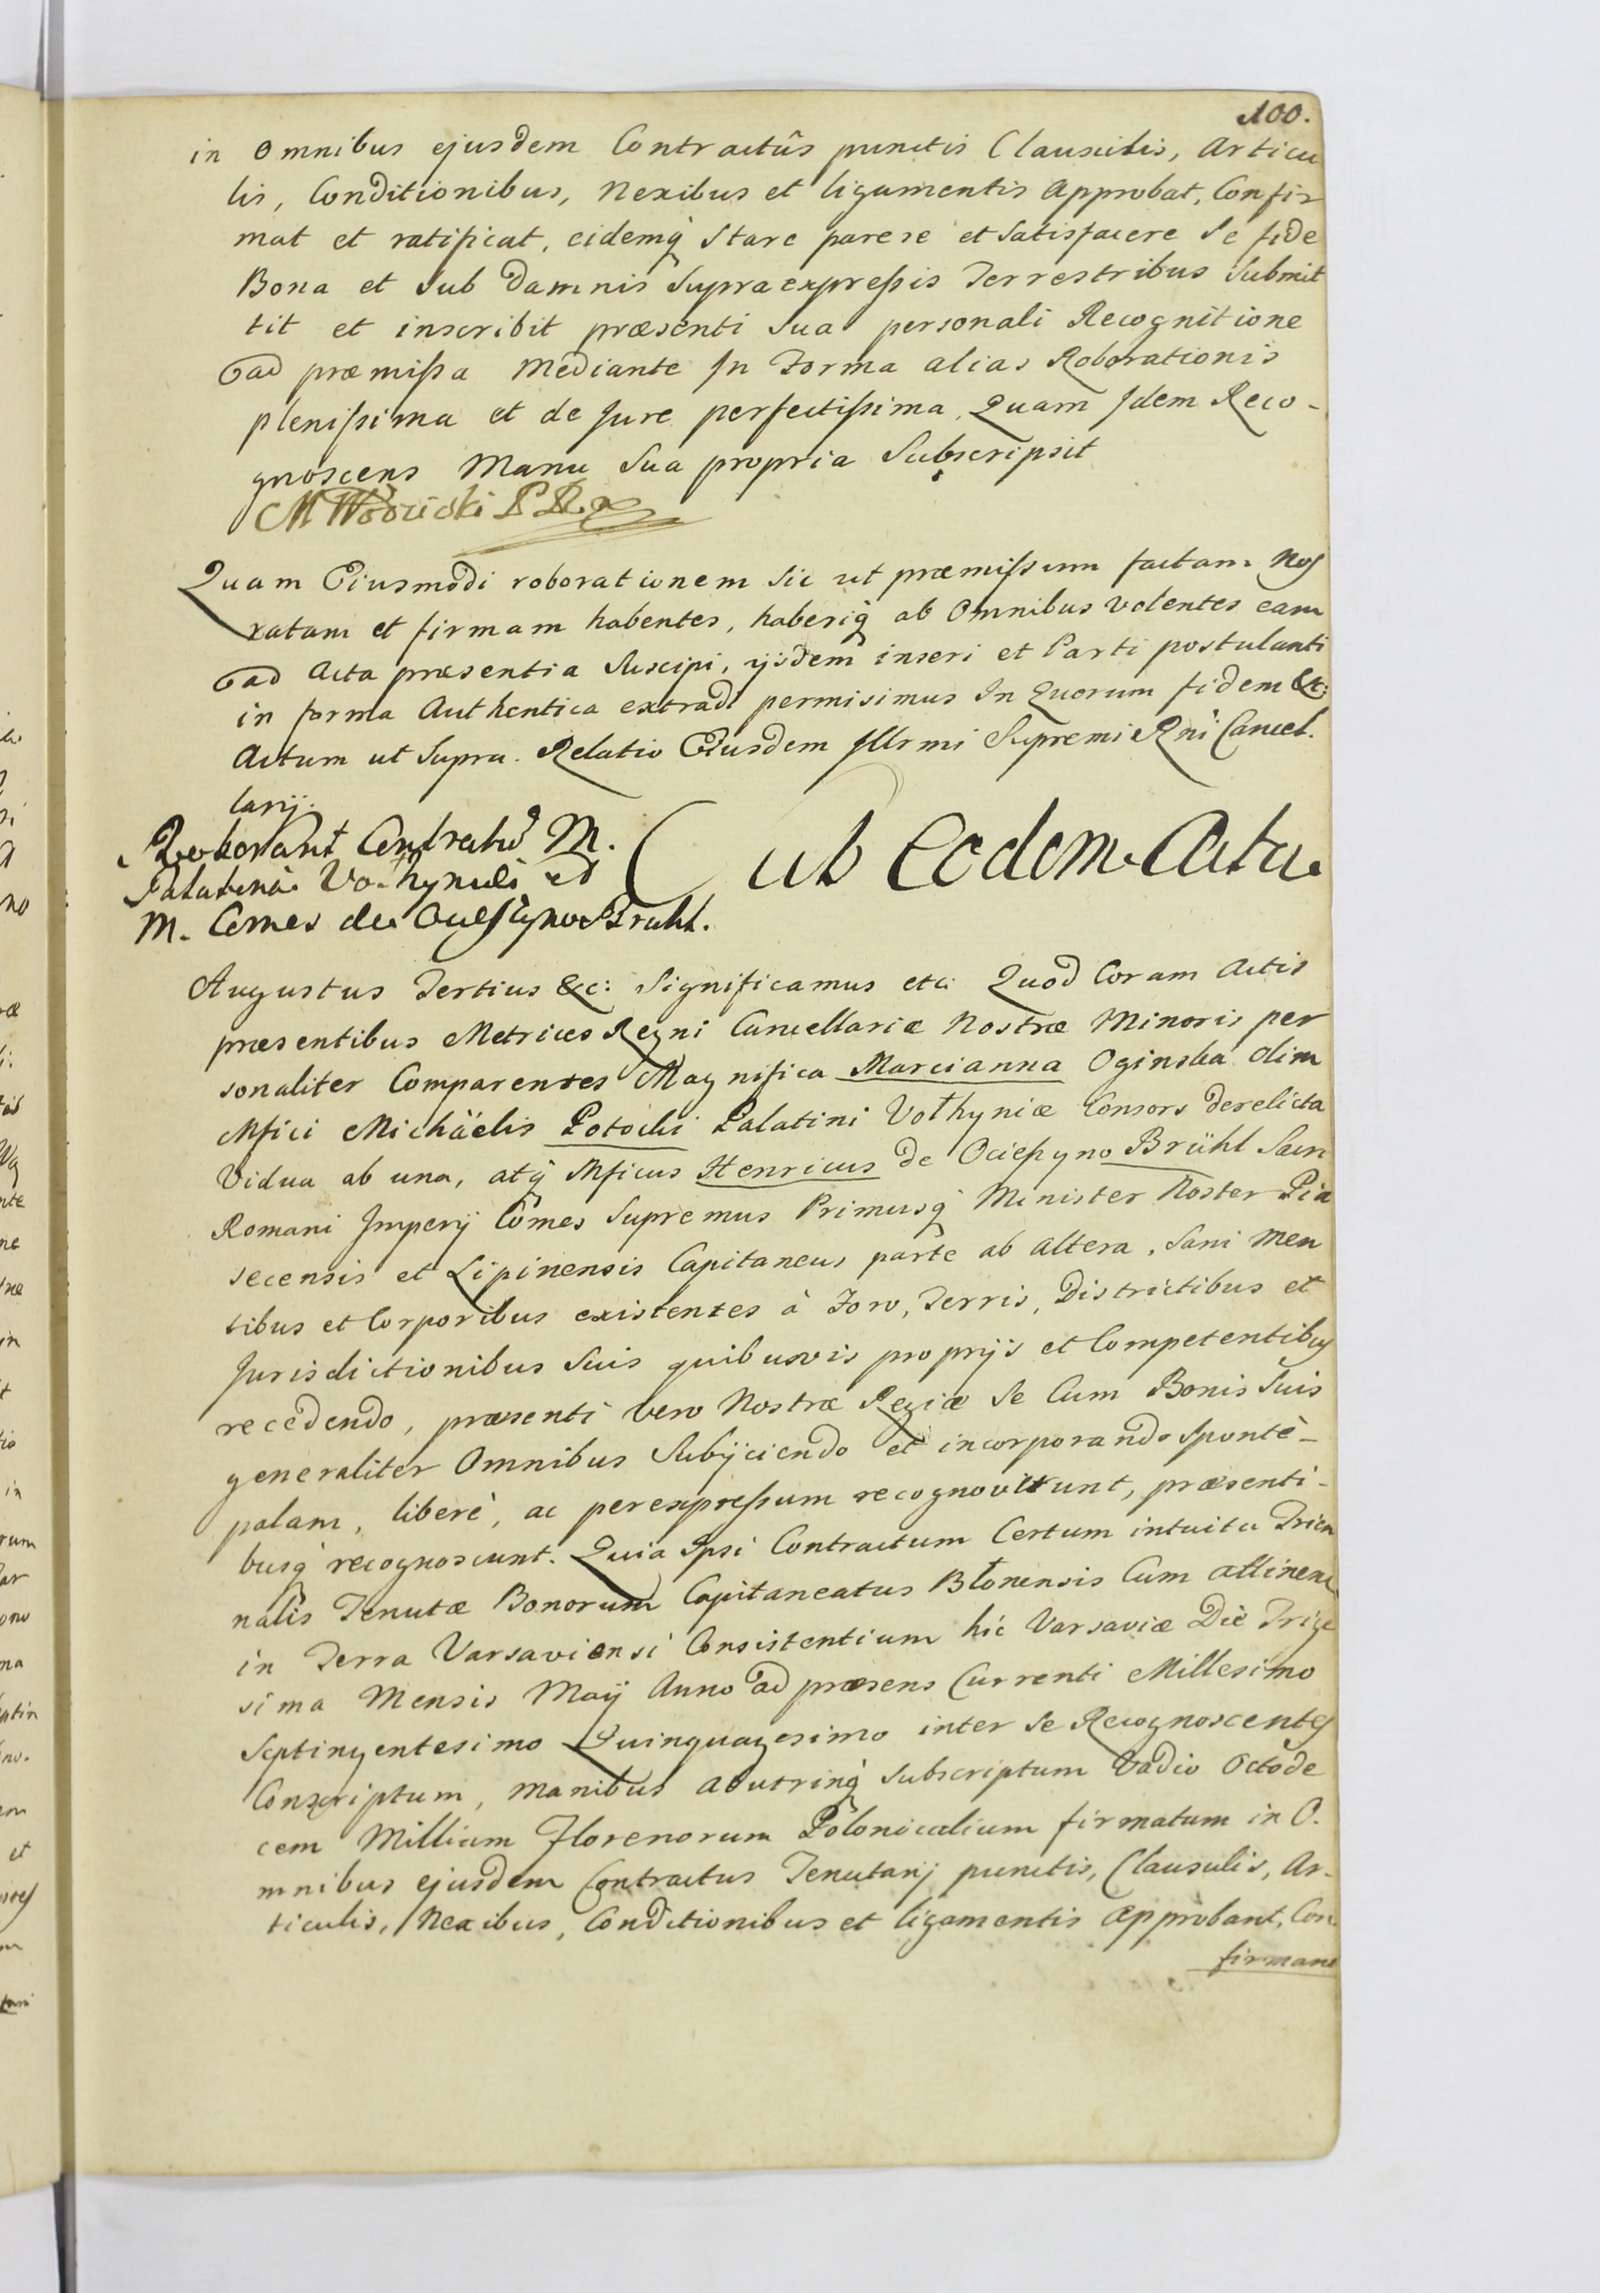 100.
in Omnibus ejusdem Contractûs punctis Clausulis, Articu
lis, Conditionibus, Nexibus et ligamentis Approbat, Confir
mat et ratificat, eidemq̀ Stare parere et Satisfacere Se fide
Bona et Sub Damnis Supraexpressis Terrestribus Submit
tit et inscribit præsenti Sua personali Recognitione
ad præmissa Mediante In Forma alias Roborationis
plenissima et de Jure perfectissima, Quam Idem Reco-
gnoscens Manu Sua propria Subscripsit
Quam Eiusmodi roborationem Sic ut præmissum factam Nos
ratam et firmam habentes, haberiq̀ ab Omnibus volentes eam
ad Acta præsentia Suscipi, ijsdem inseri et Parti postulanti
in forma Authentica extradi permisimus In Quorum fidem &c:
Actum ut Supra. Relatio Eiusdem Illrmi Supremi Rni Cancel.
larij.
Roborant Contractũ M.
Palatina Vołhyniæ et
M. Comes de Brühl.
Sub Eodem Actu
Augustus Tertius &c: Significamus etc: Quod Coram Actis
præsentibus Metrices Regni Cancellariæ Nostræ Minoris per
sonaliter Comparentes Magnifica Marcianna Oginska olim
Mfici Michäelis Potocki Palatini Vołhyniæ Consors derelicta
Vidua ab una, atq̀ Mficus Henricus de Ocieszyno Brühl Sacri
Romani Imperij Cômes Supremus Primusq̀ Minister Noster Pia
secensis et Lipinensis Capitaneus parte ab altera, Sani Men
tibus et Corporibus existentes à Foro, Terris, Districtibus et
Jurisdictionibus Suis quibusvis proprijs et Competentibus
recedendo, præsenti vero Nostræ Regiæ Se Cum Bonis Suis
generaliter Omnibus Subijciendo et incorporando Spontè-
palam, liberè, ac per expressum recognoverunt, præsenti-
busq̀ recognoscunt. Quia Ipsi Contractum Certum intuitu Trien
nalis Tenutæ Bonorum Capitaneatus Błonensis Cum attinen
in Terra Varsaviensi Consistentium hic Varsaviæ Die Trige
sima Mensis Maij Anno ad præsens Currenti Millesimo
Septingentesimo Quinquagesimo inter Se Recognoscentes
Conscriptum, Manibus ab utrinq̀ Subscriptum Vadio Octode
cem Millium Florenorum Polonicalium firmatum in O.
mnibus ejusdem Contractus Tenutarij punctis, Clausulis, Ar-
ticulis, Nexibus, Conditionibus et ligamentis Approbant, Con
firmant